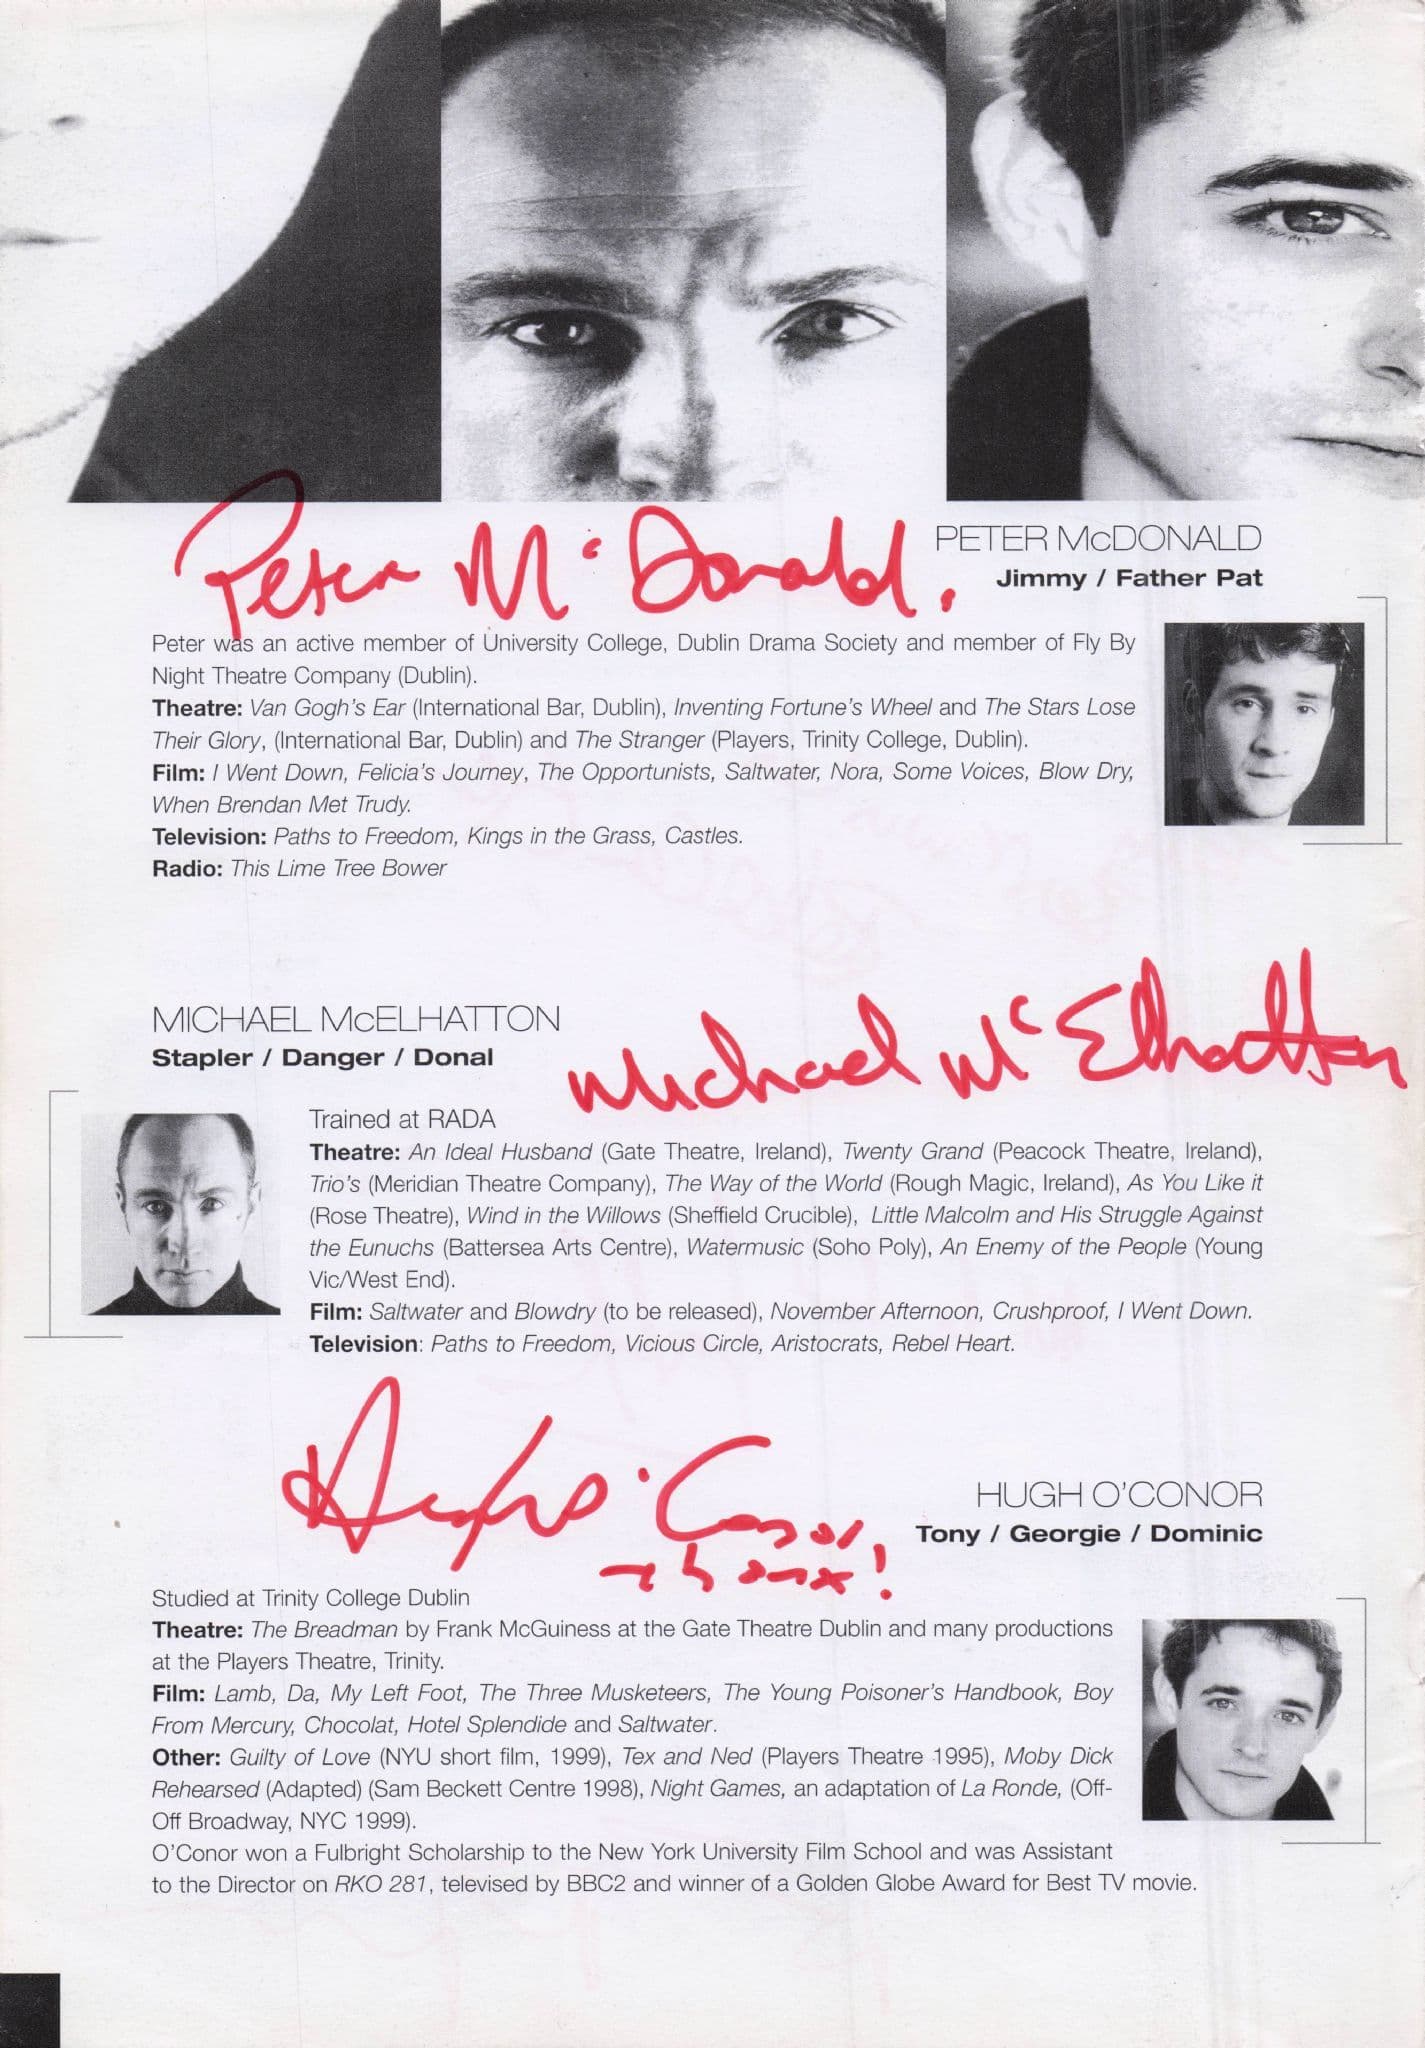 Peter McDonald.
PETER McDONALD
Jimmy / Father Pat
Peter was an active member of University College, Dublin Drama Society and member of Fly By
Night Theatre Company (Dublin).
Theatre: Van Gogh's Ear (International Bar, Dublin), Inventing Fortune's Wheel and The Stars Lose
Their Glory, (International Bar, Dublin) and The Stranger (Players, Trinity College, Dublin).
Film: I Went Down, Felicia's Journey, The Opportunists, Saltwater, Nora, Some Voices, Blow Dry,
When Brendan Met Trudy.
Television: Paths to Freedom, Kings in the Grass, Castles.
Radio: This Lime Tree Bower
MICHAEL McELHATTON
Stapler / Danger / Donal
Michael McElhatton
Trained at RADA
Theatre: An Ideal Husband (Gate Theatre, Ireland), Twenty Grand (Peacock Theatre, Ireland),
Trio's (Meridian Theatre Company), The Way of the World (Rough Magic, Ireland), As You Like it
(Rose Theatre), Wind in the Willows (Sheffield Crucible), Little Malcolm and His Struggle Against
the Eunuchs (Battersea Arts Centre), Watermusic (Soho Poly), An Enemy of the People (Young
Vic/West End).
Film: Saltwater and Blowdry (to be released), November Afternoon, Crushproof, I Went Down.
Television: Paths to Freedom, Vicious Circle, Aristocrats, Rebel Heart.
Hugh O'Conor,
thanx!
HUGH O'CONOR
Tony / Georgie / Dominic
Studied at Trinity College Dublin
Theatre: The Breadman by Frank McGuiness at the Gate Theatre Dublin and many productions
at the Players Theatre, Trinity.
Film: Lamb, Da, My Left Foot, The Three Musketeers, The Young Poisoner's Handbook, Boy
From Mercury, Chocolat, Hotel Splendide and Saltwater.
Other: Guilty of Love (NYU short film, 1999), Tex and Ned (Players Theatre 1995), Moby Dick
Rehearsed (Adapted) (Sam Beckett Centre 1998), Night Games, an adaptation of La Ronde, (Off-
Off Broadway, NYC 1999).
O'Conor won a Fulbright Scholarship to the New York University Film School and was Assistant
to the Director on RKO 281, televised by BBC2 and winner of a Golden Globe Award for Best TV movie.